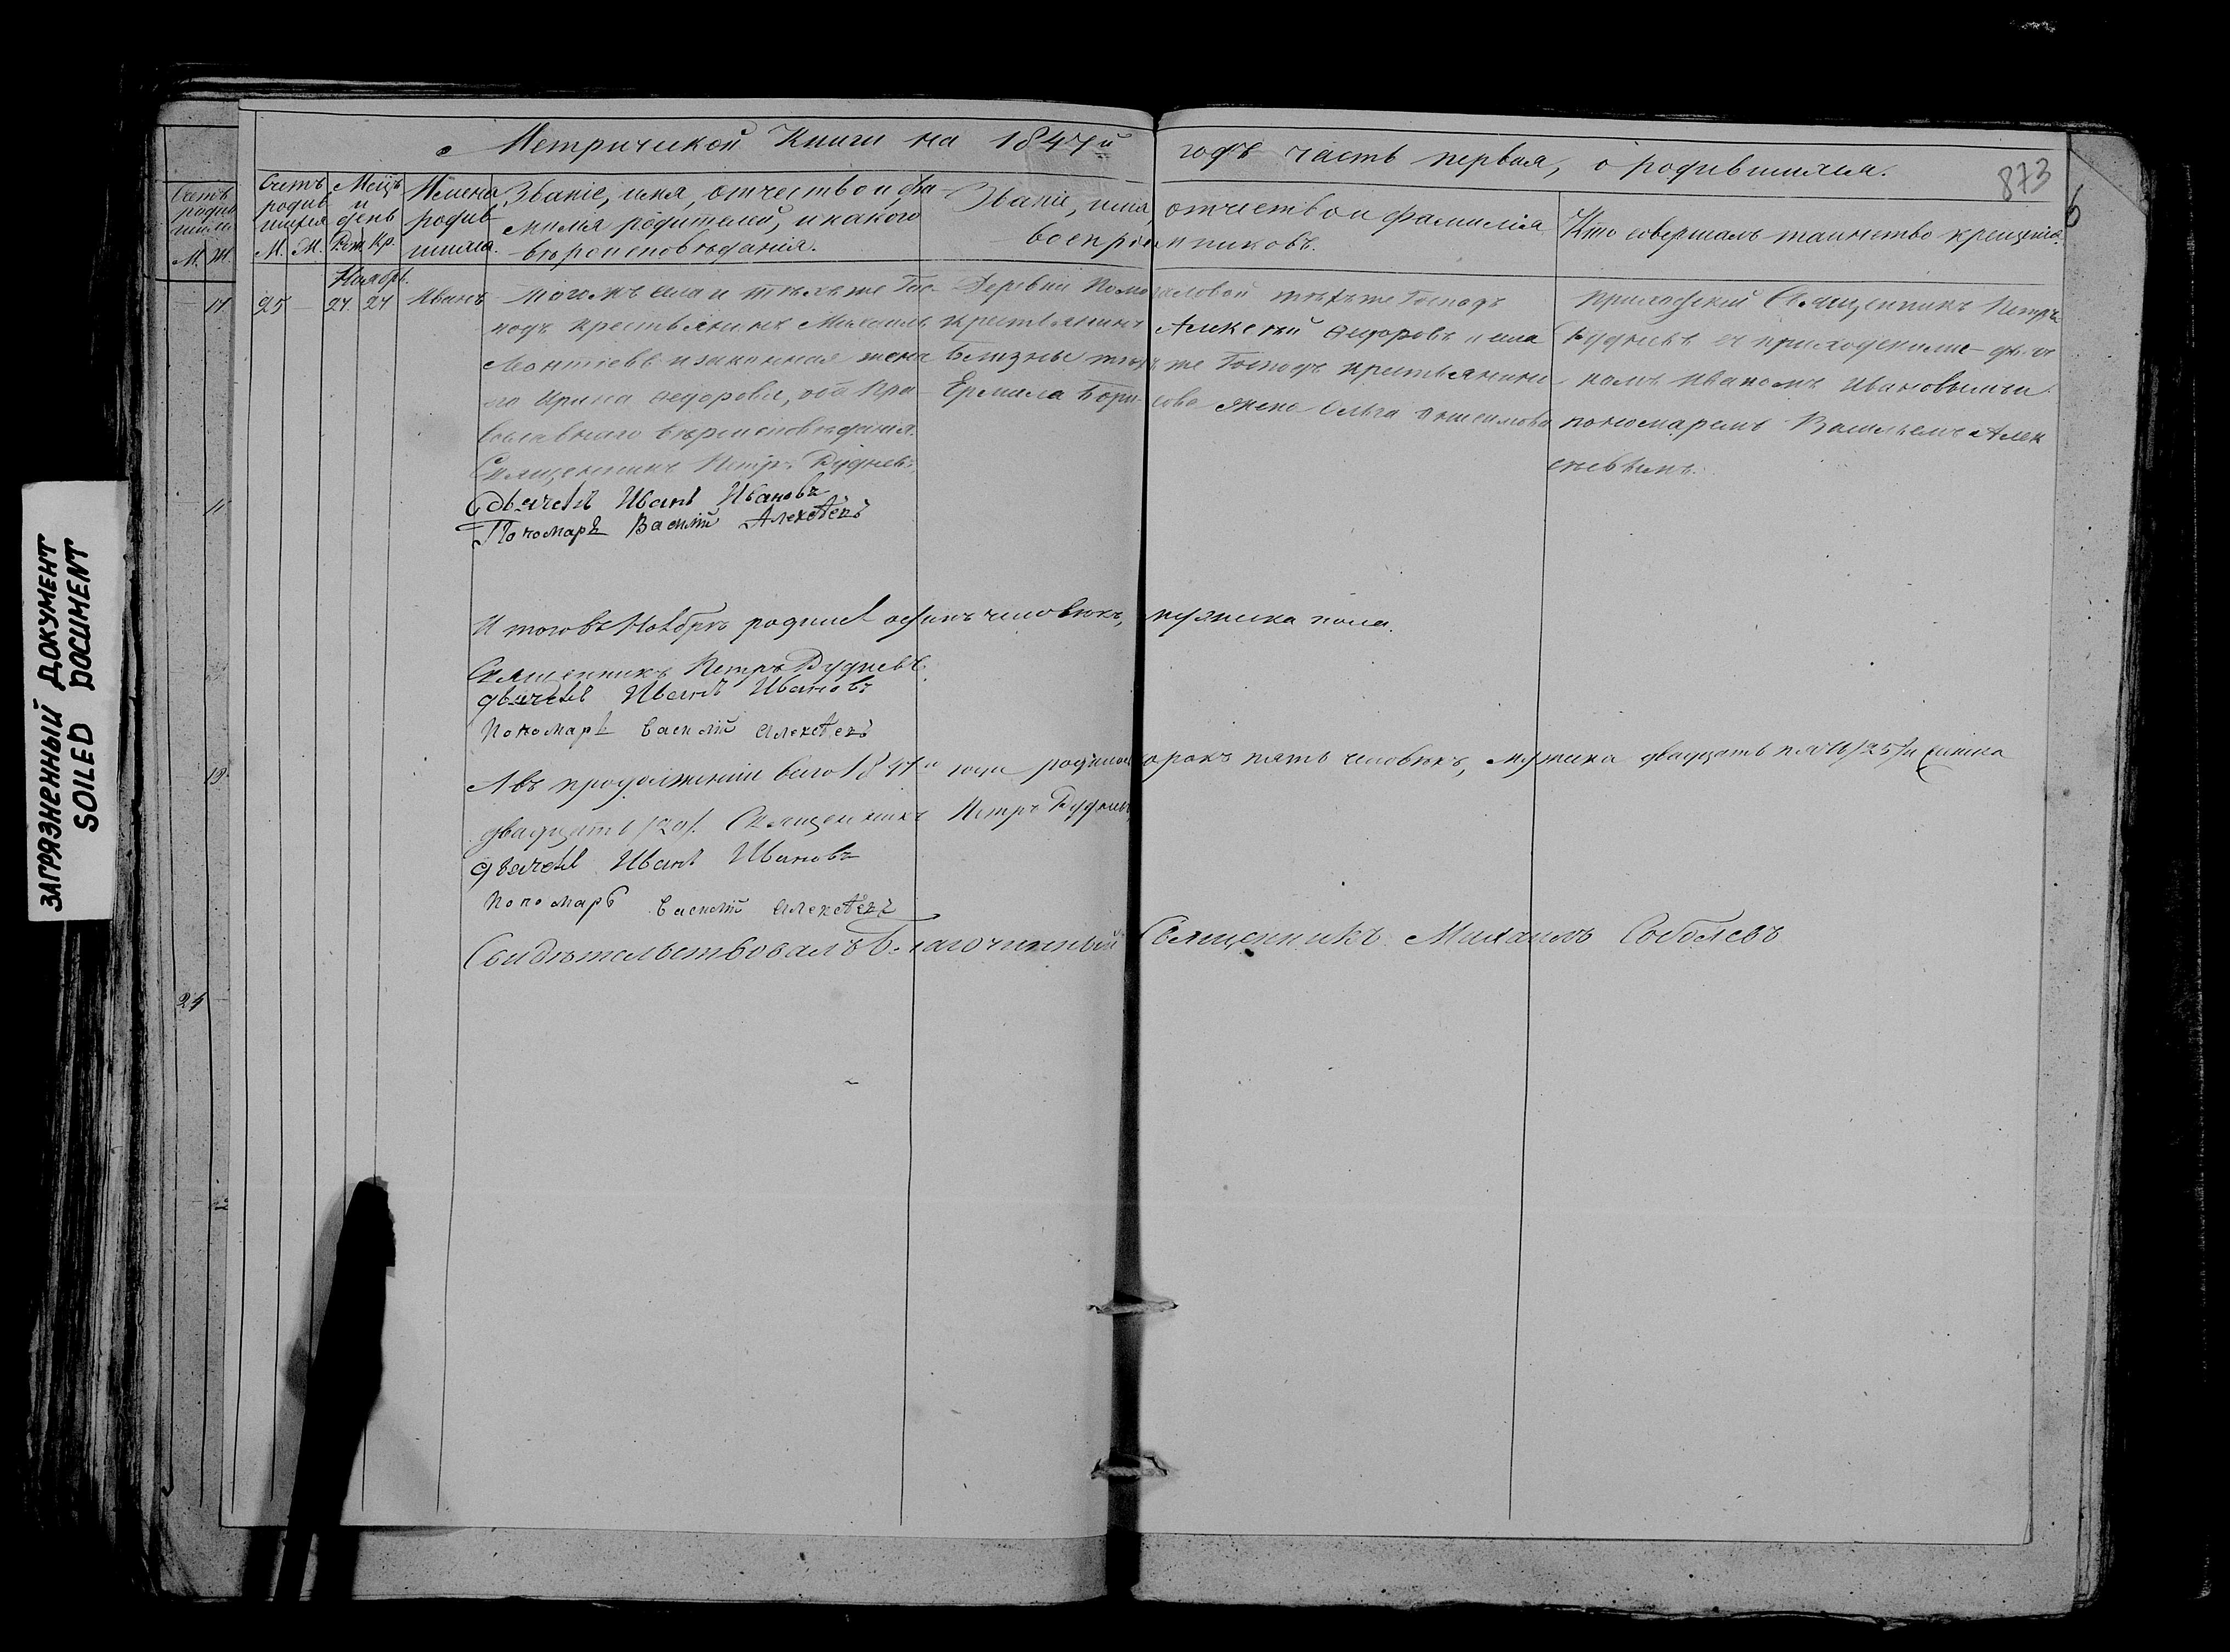 873
6
Метрической Книги на 1847й годъ часть первая, о родившихся.
Счетъ родившихся М. Ж.
Счетъ родившихся М. Ж.
Мѣсцъ и день Рож. Кр.
Имена родившихся.
Званіе, имя, отчество и фамилія родителей, и какого вѣроисповѣданія.
Званіе, имя отчество и фамилія воспріемниковъ.
Кто совершалъ таинство крещенія.
Ноябрь.
25 24 24 Иванъ
Тогожъ села и тѣхъ же Гос-
подъ крестьянинъ Михаилъ
Леонтьевъ и законная жена
его Ирина Федорова, оба пра-
вославнаго вѣроисповѣданія.
Священникъ Петръ Рудневъ
Дьячекъ Иванъ Ивановъ
Пономарь Василій Алексѣевъ
Деревни тѣхъ же Господъ
крестьянинъ Алексѣй Федоровъ и села
Близны тѣхъ же Господъ крестьянина
Ермила Борисова жена Ольга Онисимова
приходскій Священникъ Петръ
Рудневъ съ приходскими дьяч
комъ Иваномъ Ивановымъ и
пономаремъ Васильемъ Алек
сѣевымъ.
Итого въ Ноябрѣ родился одинъ человѣкъ, мужеска пола.
Священникъ Петръ Рудневъ.
дьячекъ Иванъ Ивановъ
Пономарь Василій Алексѣевъ
А въ продолженіи всего 1847го года родилось сорокъ пять человѣкъ, мужеска двадцать пять /25/ и женска
двадцать /20/. Священникъ Петръ Рудневъ
дьячекъ Иванъ Ивановъ
Пономарь Василій Алексѣевъ
Свидѣтельствовалъ Благочинный Священникъ Михаилъ Соболевъ
17
11
19
24
ЗАГРЯЗНЕННЫЙ ДОКУМЕНТ
SOILED DOCUMENT